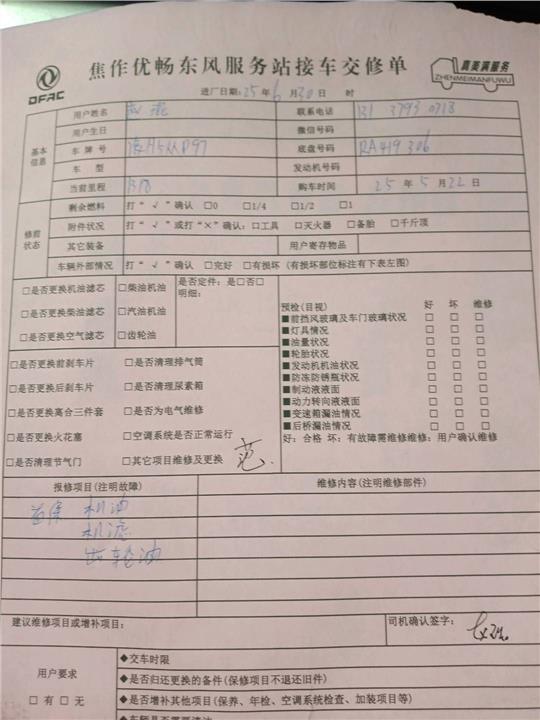 DFAC
焦作优畅东风服务站接车交修单
真美满服务
ZHENMEIMANFUWU
进厂日期:25年6月30日 时
基本信息
用户姓名 联系电话 131 3793 0718
用户生日 微信号码
车牌号 底盘号码 RA419306
车 型 发动机号码
当前里程 购车时间 25年5月22日
修前状态
剩余燃料 打“√”确认 □0 □1/4 □1/2 □1
附件状况 打“√”或打“×”确认: □工具 □灭火器 □备胎 □千斤顶
其它装备 用户寄存物品
车辆外部情况 打“√”确认 □完好 □有损坏 (有损坏部位标注有下表左图)
□是否更换机油滤芯 □柴油机油 是否定件: 是□否□
明细:
□是否更换柴油滤芯 □汽油机油
□是否更换空气滤芯 □齿轮油
预检(目视) 好 坏 维修
■前挡风玻璃及车门玻璃状况 □ □ □
■灯具情况 □ □ □
■油量状况 □ □ □
■轮胎状况 □ □ □
■发动机机油状况 □ □ □
■防冻防锈瓶状况 □ □ □
■制动液液面 □ □ □
■动力转向液液面 □ □ □
■变速箱漏油情况 □ □ □
■后桥漏油情况 □ □ □
好: 合格 坏: 有故障需维修维修: 用户确认维修
□是否更换前刹车片 □是否清理排气筒
□是否更换后刹车片 □是否清理尿素箱
□是否更换离合三件套 □是否为电气维修
□是否更换火花塞 □空调系统是否正常运行
□是否清理节气门 □其它项目维修及更换
报修项目(注明故障) 维修内容(注明维修部件)
首保 机油
机滤
齿轮油
建议维修项目或增补项目: 司机确认签字:
用户要求
□有 □无
◆交车时限
◆是否归还更换的备件(保修项目不退还旧件)
◆是否增补其他项目(保养、年检、空调系统检查、加装项目等)